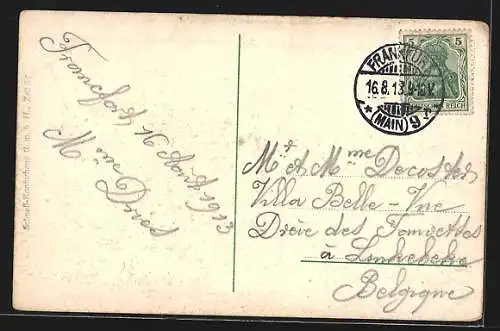 Francfort 16 Août 1913
M me Dries
FRANKFURT
16.8.13. 9-10 V.
* (MAIN) 9
5
REICH
Mr et Mme Decoster
Villa Belle-Vue
Drève des Fauvettes
à Linkebeke
Belgique